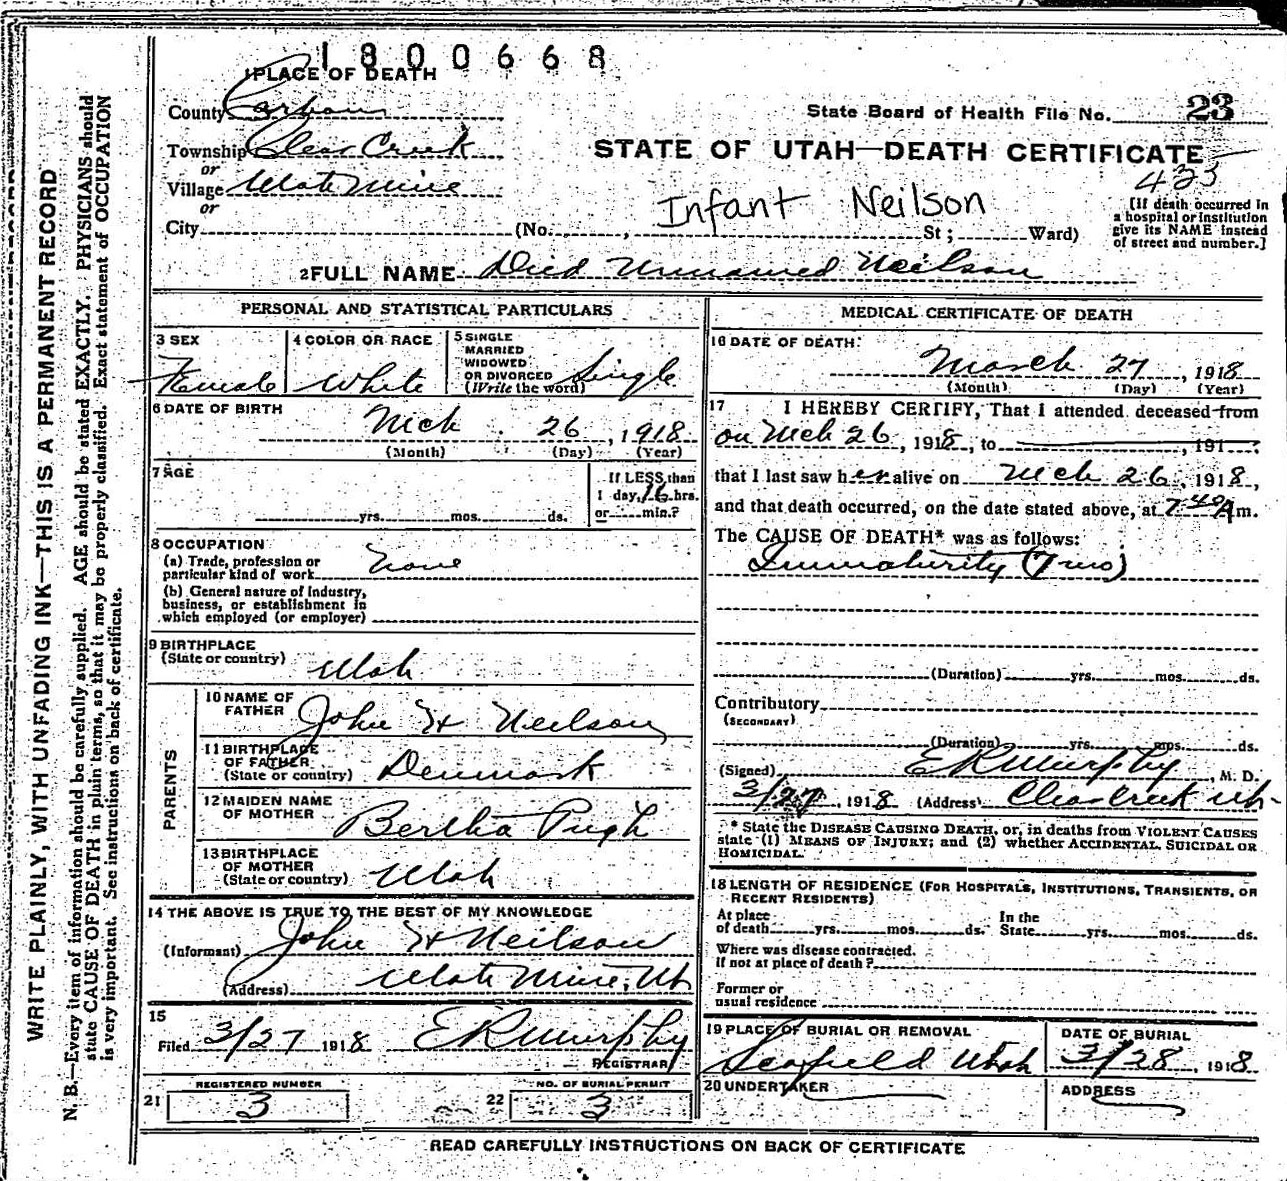 1800668
1 PLACE OF DEATH
County Carbon
State Board of Health File No. 23
Township Clear Creek
STATE OF UTAH—DEATH CERTIFICATE
or
433
Village Utah Mine
or
Infant Neilson
[If death occurred in
a hospital or institution
give its NAME instead
of street and number.]
City (No. , St ; Ward)
2 FULL NAME Died Unnamed Neilson
PERSONAL AND STATISTICAL PARTICULARS
3 SEX Female
4 COLOR OR RACE White
5 SINGLE
MARRIED
WIDOWED
OR DIVORCED
(Write the word) Single
6 DATE OF BIRTH
Mch 26, 1918
(Month) (Day) (Year)
7 AGE
yrs. mos. ds.
If LESS than
1 day, 16 hrs.
or min.?
8 OCCUPATION
(a) Trade, profession or
particular kind of work None
(b) General nature of Industry,
business, or establishment in
which employed (or employer)
9 BIRTHPLACE
(State or country) Utah
PARENTS
10 NAME OF
FATHER John H Neilson
11 BIRTHPLACE
OF FATHER
(State or country) Denmark
12 MAIDEN NAME
OF MOTHER Bertha Pugh
13 BIRTHPLACE
OF MOTHER
(State or country) Utah
14 THE ABOVE IS TRUE TO THE BEST OF MY KNOWLEDGE
(Informant) John H Neilson
(Address) Utah Mine, Ut
15
Filed 3/27 1918 E R Murphy
REGISTRAR
REGISTERED NUMBER
21 3
NO. OF BURIAL PERMIT
22 3
MEDICAL CERTIFICATE OF DEATH
16 DATE OF DEATH:
March 27, 1918
(Month) (Day) (Year)
17 I HEREBY CERTIFY, That I attended deceased from
on Mch 26, 1918, to , 191 ;
that I last saw her alive on Mch 26, 1918,
and that death occurred, on the date stated above, at 7 40 A m.
The CAUSE OF DEATH* was as follows:
Immaturity (7 mo)
(Duration) yrs. mos. ds.
Contributory
(SECONDARY)
(Duration) yrs. mos. ds.
(Signed) E R Murphy, M. D.
3/27, 1918 (Address) Clear Creek Ut
* State the DISEASE CAUSING DEATH, or, in deaths from VIOLENT CAUSES
state (1) MEANS OF INJURY; and (2) whether ACCIDENTAL, SUICIDAL OR
HOMICIDAL.
18 LENGTH OF RESIDENCE (FOR HOSPITALS, INSTITUTIONS, TRANSIENTS, OR
RECENT RESIDENTS)
At place
of death yrs. mos. ds.
In the
State yrs. mos. ds.
Where was disease contracted,
if not at place of death?
Former or
usual residence
19 PLACE OF BURIAL OR REMOVAL
Scofield Utah
DATE OF BURIAL
3/28, 1918
20 UNDERTAKER
ADDRESS
READ CAREFULLY INSTRUCTIONS ON BACK OF CERTIFICATE
WRITE PLAINLY, WITH UNFADING INK—THIS IS A PERMANENT RECORD
N. B.—Every item of information should be carefully supplied. AGE should be stated EXACTLY. PHYSICIANS should
state CAUSE OF DEATH in plain terms, so that it may be properly classified. Exact statement of OCCUPATION
is very important. See instructions on back of certificate.